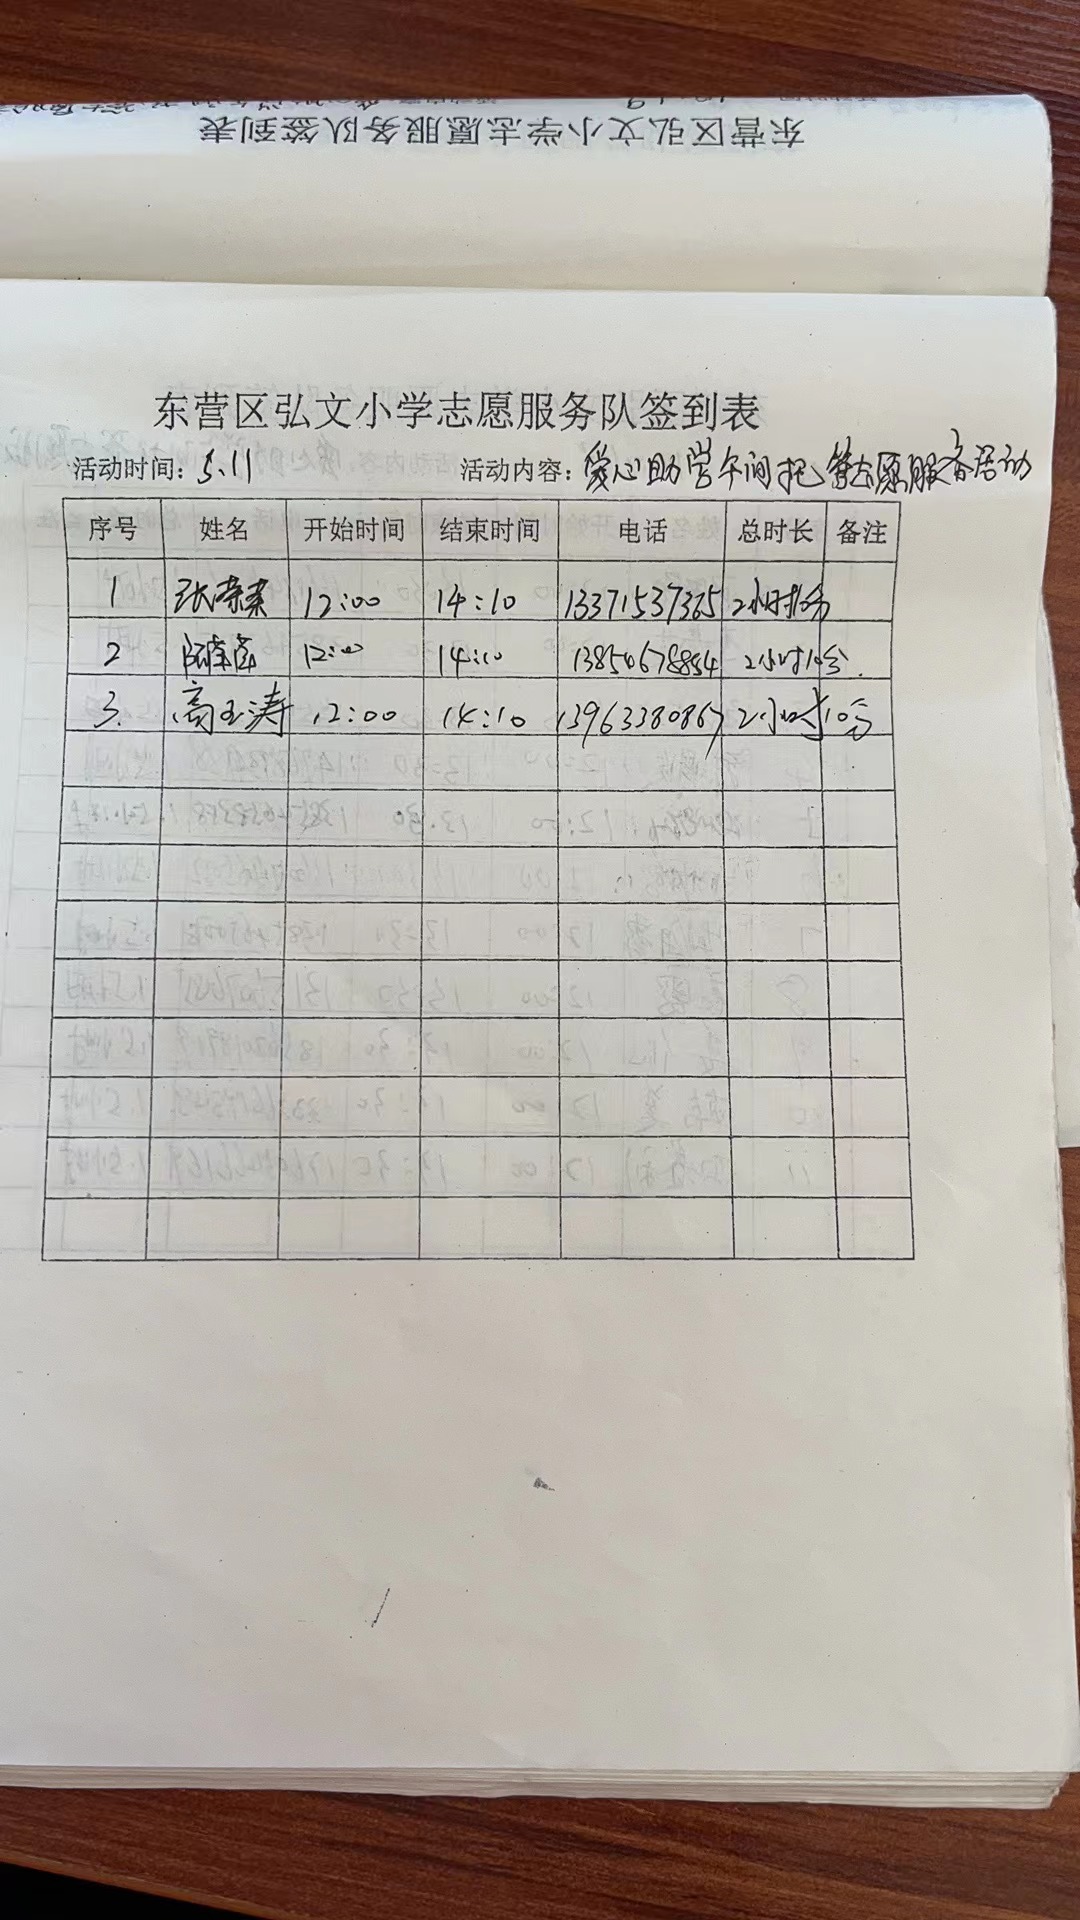 东营区弘文小学志愿服务队签到表
东营区弘文小学志愿服务队签到表
活动时间：5.11 活动内容：爱心助学午间托管志愿服务活动
序号 姓名 开始时间 结束时间 电话 总时长 备注
1 张荣 12:00 14:10 13371537365 2小时10分
2 12:00 14:10 13854678854 2小时10分.
3. 高玉涛 12:00 14:10 13963380867 2小时10分